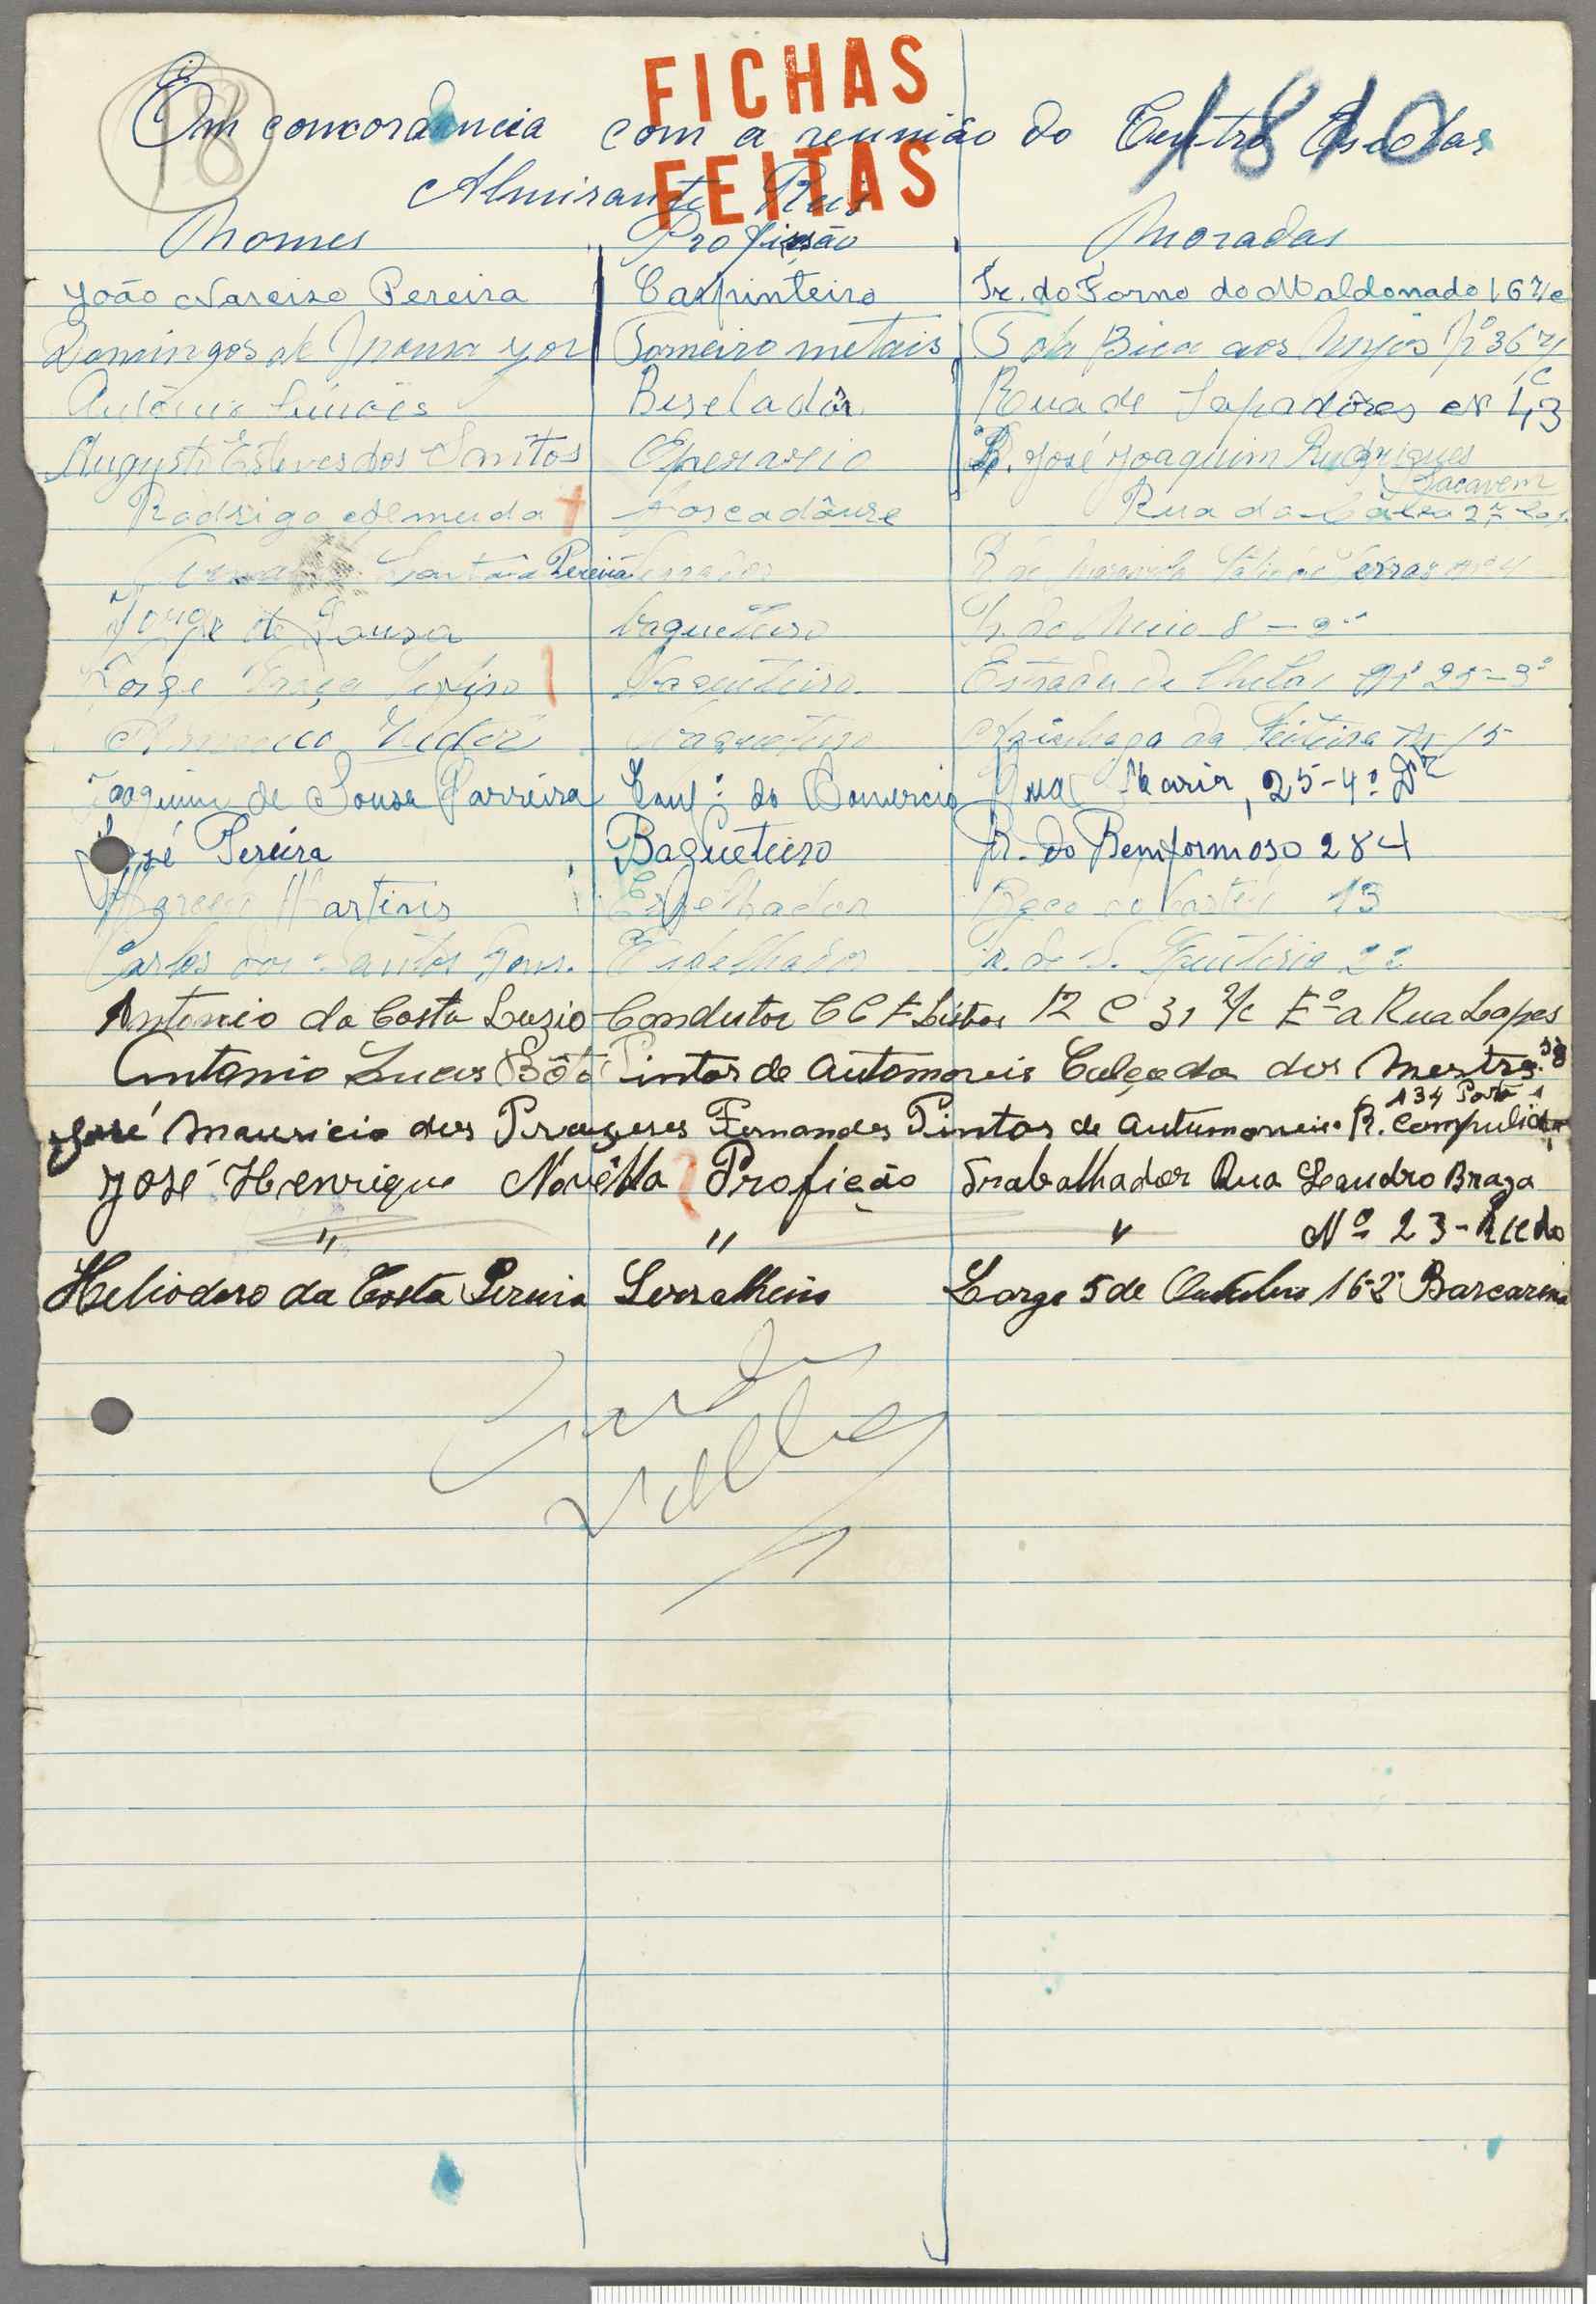 FICHAS
18
1810
Em concordancia com a reunião do Centro Escolar
FEITAS
Almirante Reis
Nomes Profissão Moradas
João Narciso Pereira Carpinteiro Tr. do Forno do Maldonado 16 r/c
Domingos de Torneiro metais T da Bica aos Anjos Nº 36 r/c
António Simões Biseladôr Rua de Sapadôres Nº 43
Augusto Esteves dos Santos Operario R. José Joaquim Rodrigues
Sacavem
Rodrigo Almeida Rua da
Pereira
de Sousa Vaqueteiro do Meio 8 - 2º
Jorge Vaqueteiro Estrada de Chelas Nº 25-3º
Vaqueteiro Azinhaga da Feiteira Nº 15
Joaquim de Sousa Parreira Emp.º do Comercio Rua Maria, 25-4º Dtº
José Pereira Baqueteiro R. do Benformoso 284
Martins Espelhador Beco do 13
Carlos dos Santos Espelhador 22
Antonio da Costa Luzio Condutor CCF Lisboa R C 31 r/c Eº a Rua Lopes
Antonio Lucas Bôto Pintor de Automoveis Calçada dos Mestres 38
134 Porta 1
José Mauricio dos Prazeres Fernandes Pintor de Autumoveis R.
José Henrique Novêlla Profição Trabalhador Rua Leandro Braga
" " " Nº 23-
Heliodoro da Costa Pereira Serralheiro Largo 5 de Outubro 16-2º Barcarena